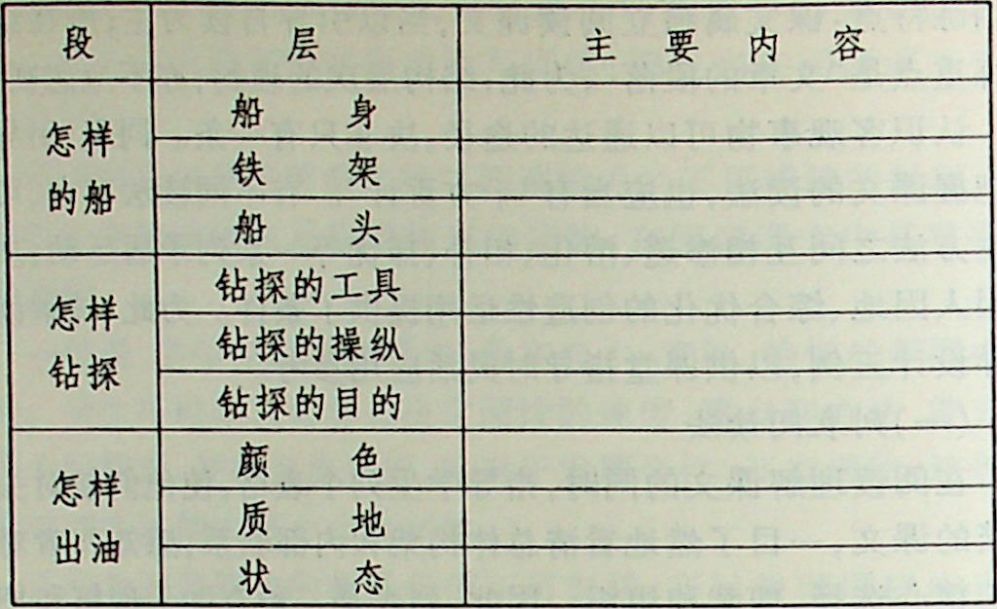 段 层 主要内容
怎样的船 船身
铁架
船头
怎样钻探 钻探的工具
钻探的操纵
钻探的目的
怎样出油 颜色
质地
状态